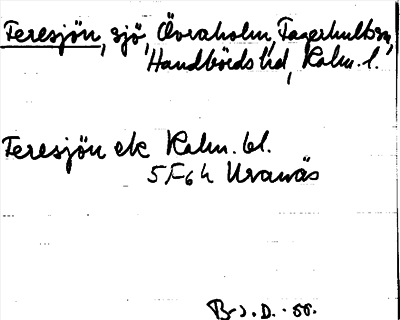 Feresjön, sjö, Övraholm, Fagerhults sn,
Handbörds hd, Kalm. l.
Feresjön ek Kalm. bl.
5 F 6 h Uranäs
B-s. D. -55.